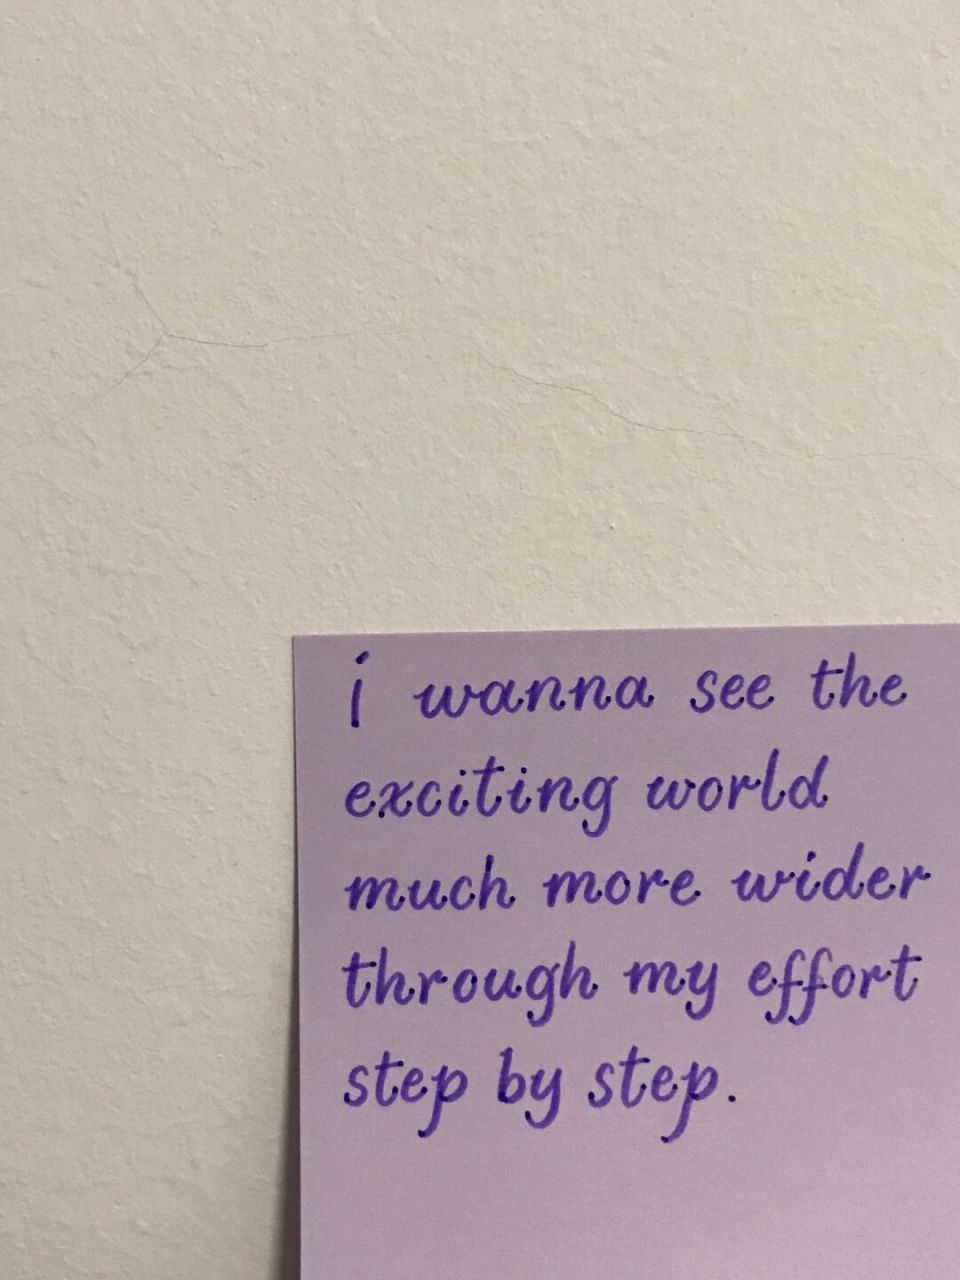 i wanna see the
exciting world
much more wider
through my effort
step by step.